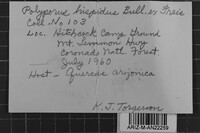 Polyporus hispidus Bull. ex Fries
Coll. No 103
Loc. Hitchcock Camp Ground
Mt. Lemmon Hwy
Coronado Natl. Forest
July 1960
Host - Quercus arizonica
K. J. Torgerson
ARIZ-M-AN22259